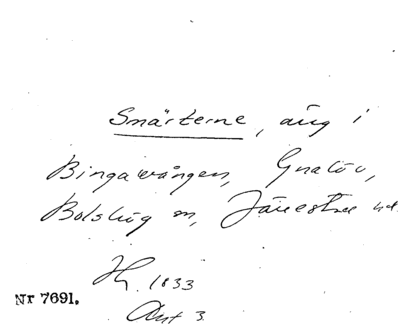 Smärterne, äng i
Bingavången, Gnalöv,
Bolshög m, Järrestad hd.
H. 1833
Akt 3.
Nr 7691.